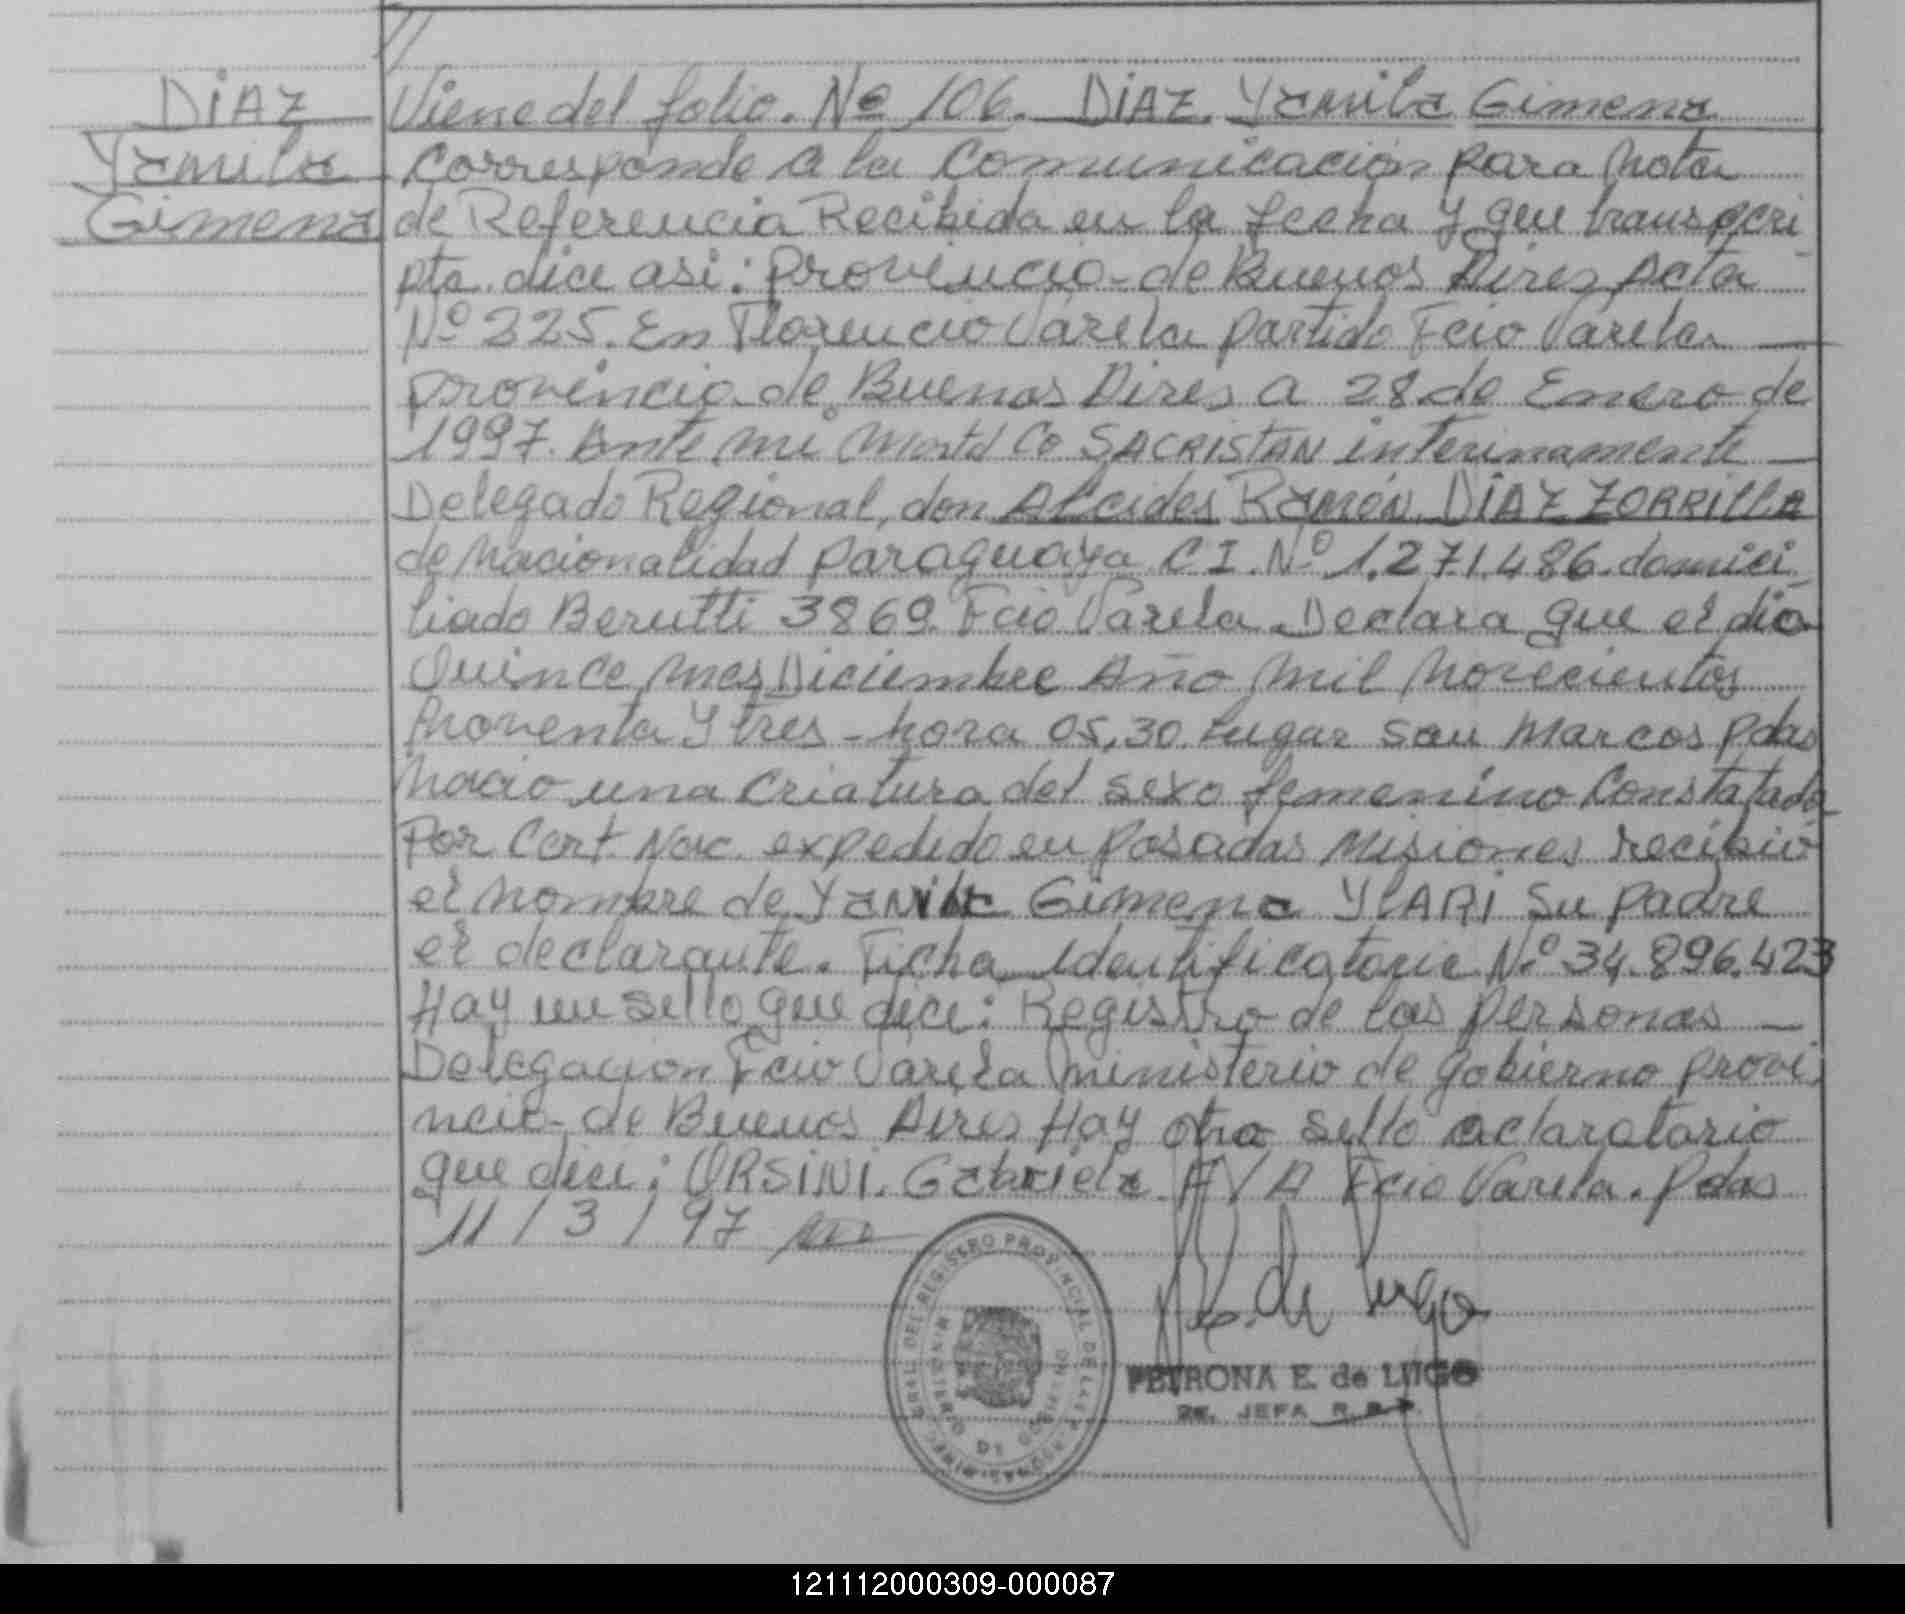 DiAZ
Yamila
Gimena
Viene del folio. Nº 106. DiAZ. Yamila Gimena
Corresponde a la Comunicación para Nota
de Referencia Recibida en la fecha y que transcri
pta dice asi: provincia de Buenos Aires Acta
Nº 225. En Florencio Varela partido Fcio Varela
provincia de Buenos Aires a 28 de Enero de
1997. Ante mi Co SACRISTAN interinamente
Delegado Regional, don Alcides Ramón DiAZ ZORRILLA
de Nacionalidad paraguaya C I. Nº 1.271.486. domici
liado Berutti 3869. Fcio Varela Declara que el dia
Quince mes Diciembre Año mil Novecientos
Noventa y tres - hora 05,30. Lugar San Marcos Pdas
Nacio una Criatura del sexo femenino Constatado
Por Cert. Nac. expedido en Posadas Misiones recibio
el Nombre de Yamila Gimena YLARI Su padre
el declarante. Ficha Identificatoria Nº 34.896.423
Hay un sello que dice: Registro de las Personas
Delegacion Fcio Varela Ministerio de Gobierno provi
ncia de Buenos Aires Hay otro sello aclaratorio
que dice: ORSINI. Gabriela A/A Fcio Varela. Pdas
11/3/97
GRAL DEL REGISTRO PROVINCIAL DE LAS PERSONAS
MINISTERIO DE GOBIERNO
de Lugo
PETRONA E. de LUGO
JEFA R.P.P.
121112000309-000087